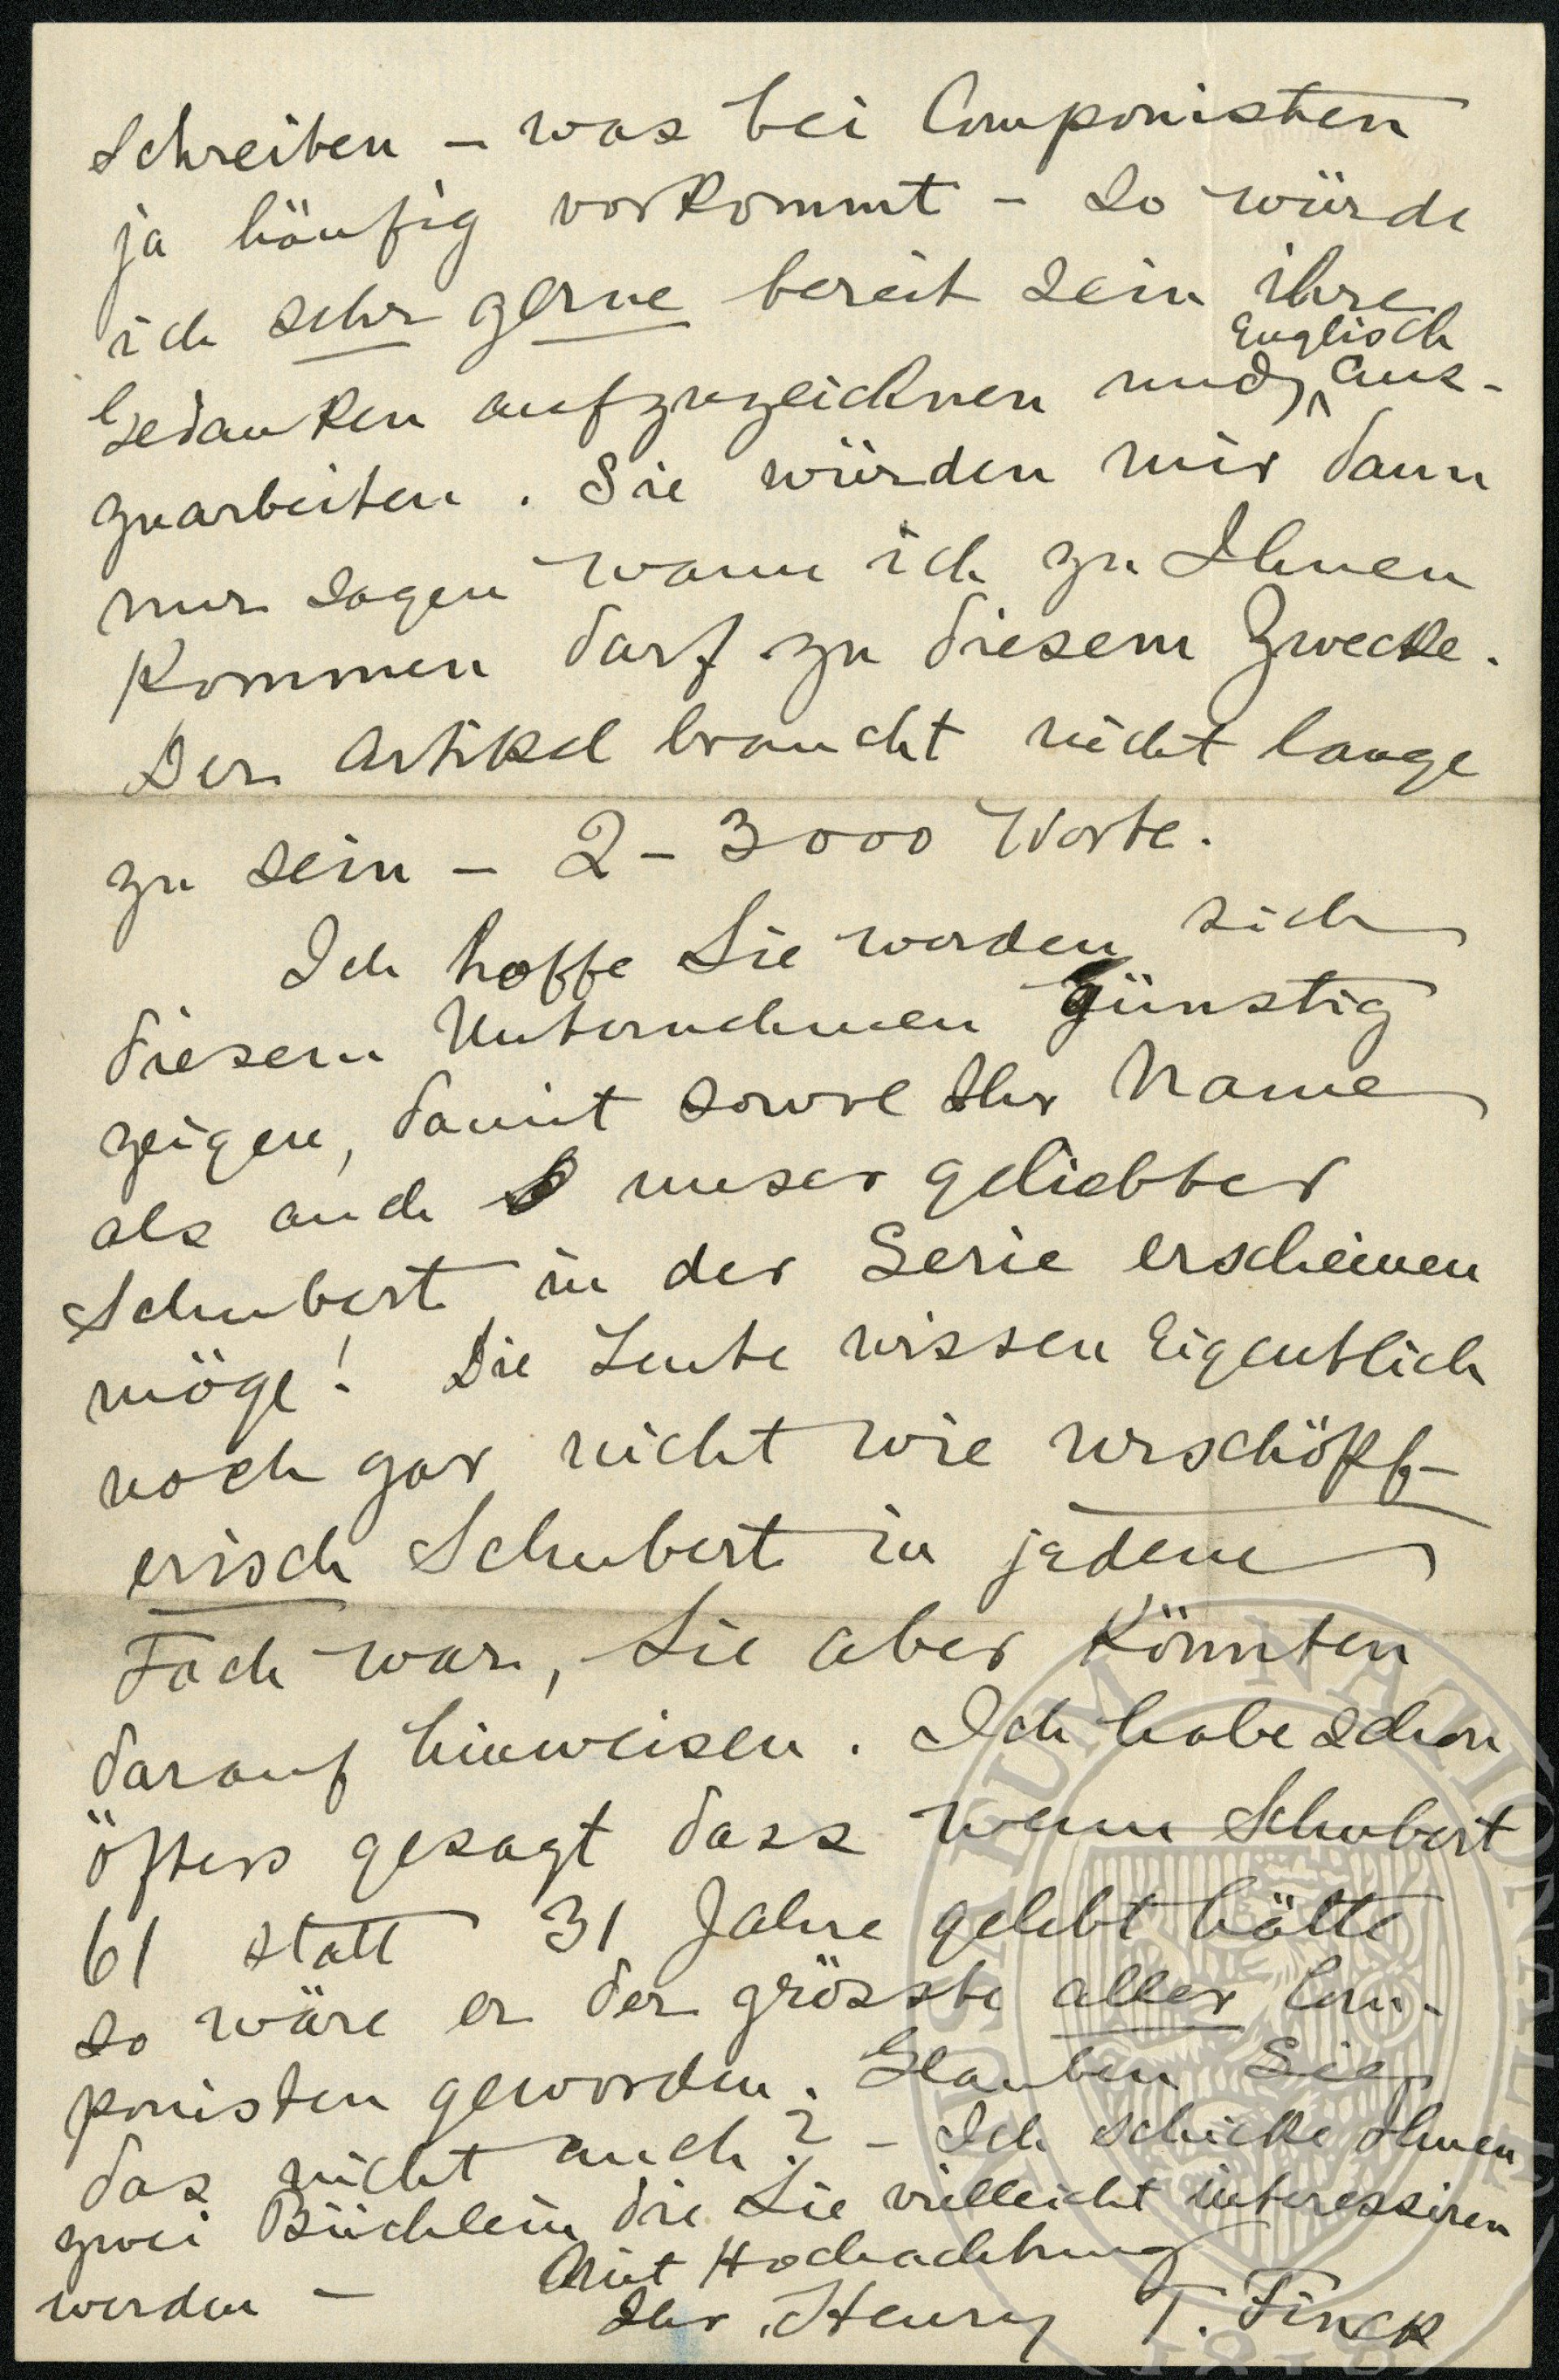 schreiben – was bei Componisten
ja häufig vorkommt – so würde
ich sehr gerne bereit sein ihre
Englisch
Gedanken aufzuzeichnen und aus-
zuarbeiten. Sie würden mir dann
nur sagen wann ich zu Ihnen
kommen darf zu diesem Zwecke.
Der Artikel braucht nicht lange
zu sein – 2–3000 Worte.
Ich hoffe Sie werden sich
diesem Unternehmen günstig
zeigen, damit sowol Ihr Name
als auch unser geliebter
Schubert in der Serie erscheinen
möge! Die Leute wissen Eigentlich
noch gar nicht wie urschöpf-
erisch Schubert in jedem
Fach war, Sie aber könnten
darauf hinweisen. Ich habe schon
öfters gesagt dass wenn Schubert
61 statt 31 Jahre gelebt hätte
so wäre er der grösste aller Com-
ponisten geworden. Glauben Sie
das nicht auch? – Ich schicke Ihnen
zwei Büchlein die Sie vielleicht interessiren
werden – Mit Hochachtung
Ihr Henry T. Finck
MUSAEUM NATIONALE
1818